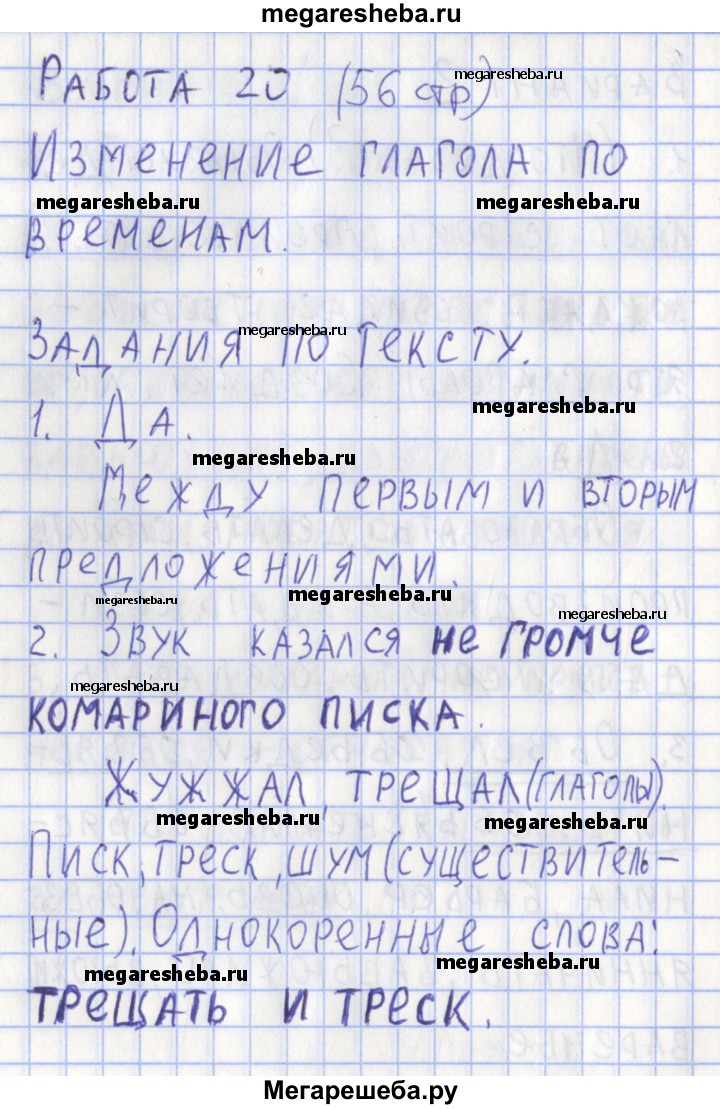 megaresheba.ru
Работа 20 (56 стр)
megaresheba.ru
Изменение глагола по
megaresheba.ru megaresheba.ru
временам.
megaresheba.ru
Задания по тексту.
megaresheba.ru
1. Да.
megaresheba.ru
Между первым и вторым
предложениями.
megaresheba.ru megaresheba.ru megaresheba.ru
2. Звук казался не громче
megaresheba.ru
комариного писка.
Жужжал, трещал (глаголы).
megaresheba.ru megaresheba.ru
Писк, треск, шум (существитель-
ные). Однокоренные слова:
megaresheba.ru megaresheba.ru
трещать и треск.
Мегарешеба.ру